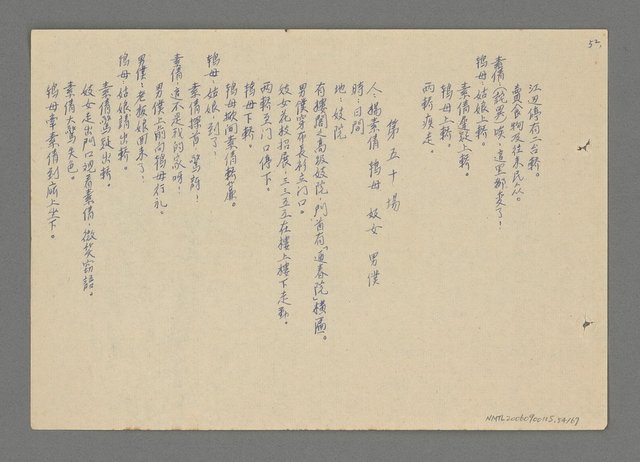 52.
江边停有二台轎。
賣食物及往來民众。
素倩(詫異)咦，這里都变了！
鴇母：姑娘上轎。
素倩遲疑上轎。
鴇母上轎。
两轎疾走。
第五十場
人：楊素倩 鴇母 妓女 男僕
時：日間
地：妓院
有樓閣之高級妓院，門首有「迎春院」橫匾。
男僕穿布長衫立門口。
妓女花枝招展，三三五五在樓上樓下走動。
两轎至門口停下。
鴇母下轎。
鴇母掀開素倩轎簾。
鴇母：姑娘，到了！
素倩探首，驚訝！
素倩：這不是我的家呀！
男僕上前向鴇母行礼。
男僕：老板娘回來了！
鴇母：姑娘請出轎。
素倩驚疑出轎。
妓女走出門口視看素倩，微笑窃語。
素倩大驚失色。
鴇母牽素倩到廳上坐下。
NMTL20060900115.54/67